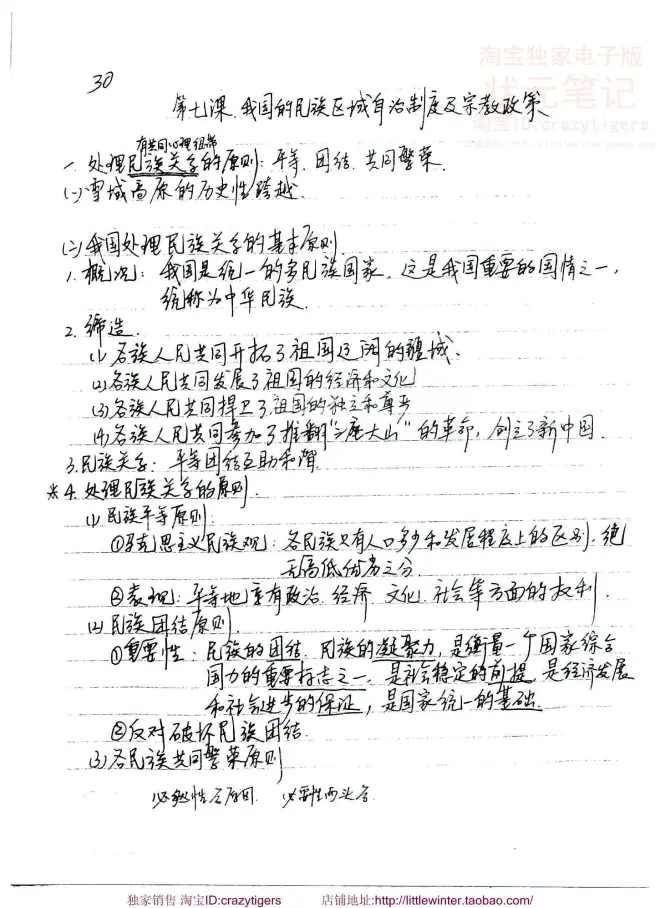 淘宝独家电子版
状元笔记
淘宝ID:crazytigers
30
第七课 我国的民族区域自治制度及宗教政策
有共同心理纽带
一、处理民族关系的原则：平等、团结、共同繁荣.
(一)雪域高原的历史性跨越.
(二)我国处理民族关系的基本原则
1. 概况：我国是统一的多民族国家，这是我国重要的国情之一，
统称为中华民族.
2. 缔造.
(1) 各族人民共同开拓了祖国辽阔的疆域.
(2)各族人民共同发展了祖国的经济和文化
(3)各族人民共同捍卫了祖国的独立和尊严
(4)各族人民共同参加了推翻"三座大山"的革命，创立了新中国.
3.民族关系：平等团结互助和谐
※4. 处理民族关系的原则.
(1) 民族平等原则.
①马克思主义民族观：各民族只有人口多少和发展程度上的区别，绝
无高低优劣之分.
②表现：平等地享有政治、经济、文化、社会等方面的权利.
(2) 民族团结原则.
①重要性：民族的团结、民族的凝聚力，是衡量一个国家综合
国力的重要标志之一，是社会稳定的前提，是经济发展
和社会进步的保证，是国家统一的基础.
②反对破坏民族团结.
(3)各民族共同繁荣原则
独家销售 淘宝ID:crazytigers 店铺地址:http://littlewinter.taobao.com/